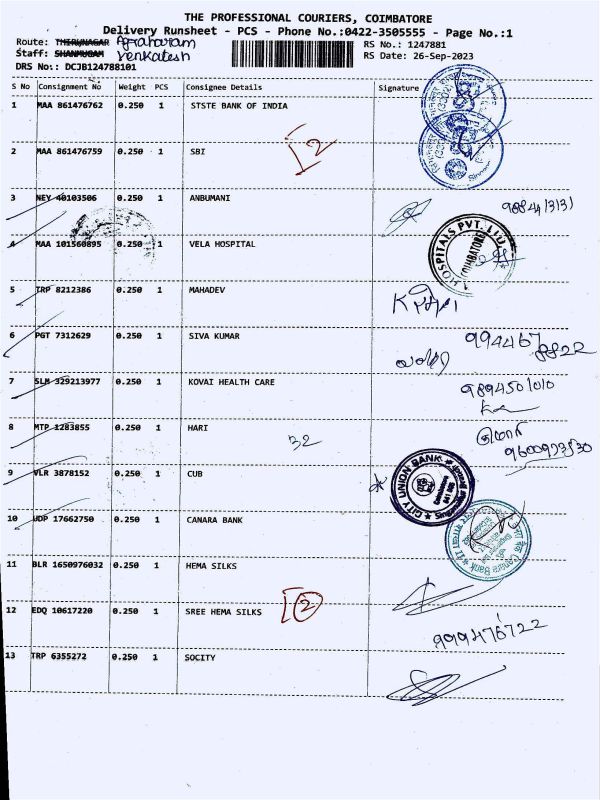 THE PROFESSIONAL COURIERS, COIMBATORE
Delivery Runsheet - PCS - Phone No.:0422-3505555 - Page No.:1
Route: THIRUNAGAR Agraharam
RS No.: 1247881
Staff: SHANMUGAM Venkatesh
RS Date: 26-Sep-2023
DRS No.: DCJB124788101
S No Consignment No Weight PCS Consignee Details Signature
1 MAA 861476762 0.250 1 STSTE BANK OF INDIA
2 MAA 861476759 0.250 1 SBI 2
3 NEY 40103506 0.250 1 ANBUMANI
4 MAA 101560895 0.250 1 VELA HOSPITAL HOSPITALS PVT. LTD. COIMBATORE
5 TRP 8212386 0.250 1 MAHADEV
6 PGT 7312629 0.250 1 SIVA KUMAR
7 SLM 329213977 0.250 1 KOVAI HEALTH CARE
8 MTP 1283855 0.250 1 HARI 32
9 VLR 3878152 0.250 1 CUB CITY UNION BANK
10 UDP 17662750 0.250 1 CANARA BANK Canara Bank
11 BLR 1650976032 0.250 1 HEMA SILKS
12 EDQ 10617220 0.250 1 SREE HEMA SILKS 2
999476722
13 TRP 6355272 0.250 1 SOCITY